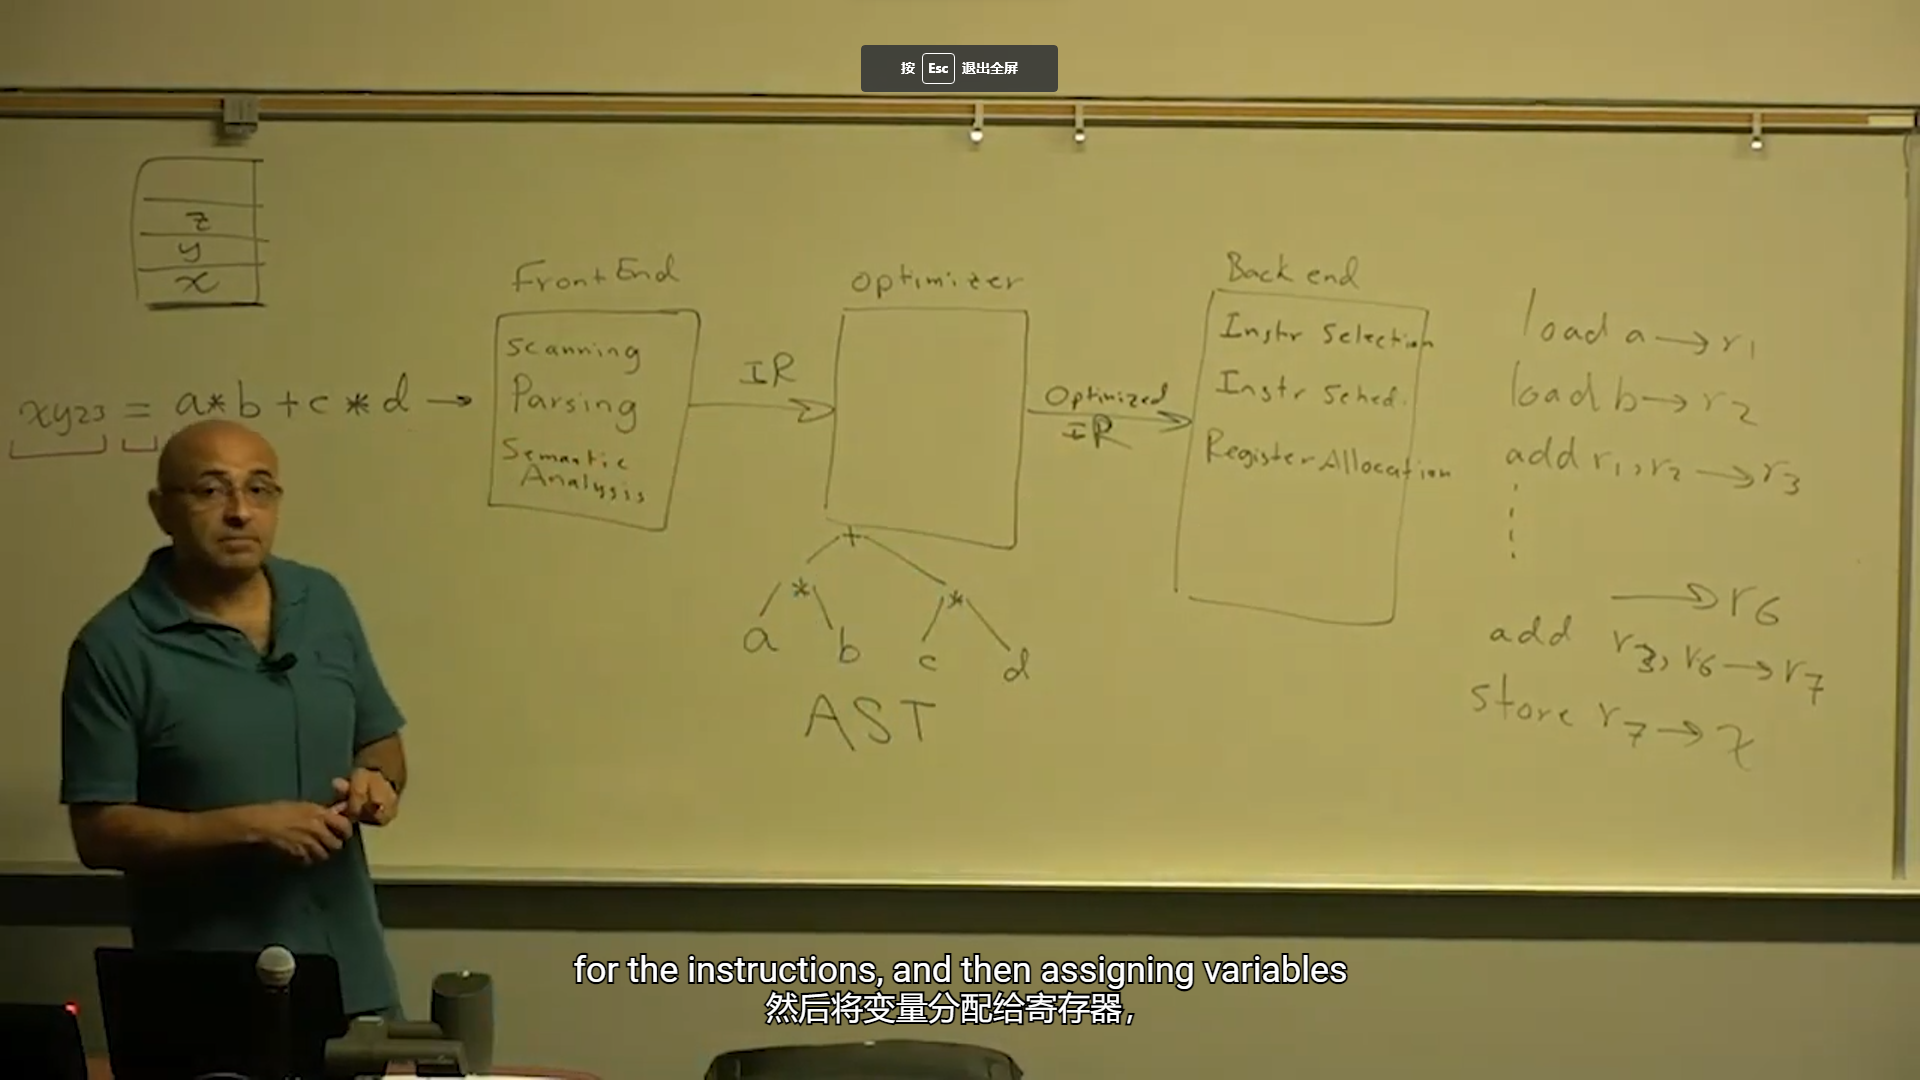 按 Esc 退出全屏
z
y
x
Front End
Scanning
Parsing
Semantic
Analysis
xyz3 = a*b + c * d →
IR
Optimizer
Optimized
IR
Back end
Instr Selection
Instr Sched.
Register Allocation
+
* *
a b c d
AST
load a → r1
load b → r2
add r1, r2 → r3
→ r6
add r3, r6 → r7
store r7 → x
for the instructions, and then assigning variables
然后将变量分配给寄存器，